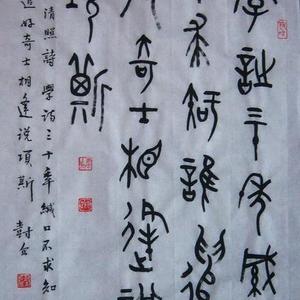 學詩三十年緘
求知誰遣
好奇士相逢說
項斯
清照詩 學詩三十年緘口不求知
遣好奇士相逢说項斯